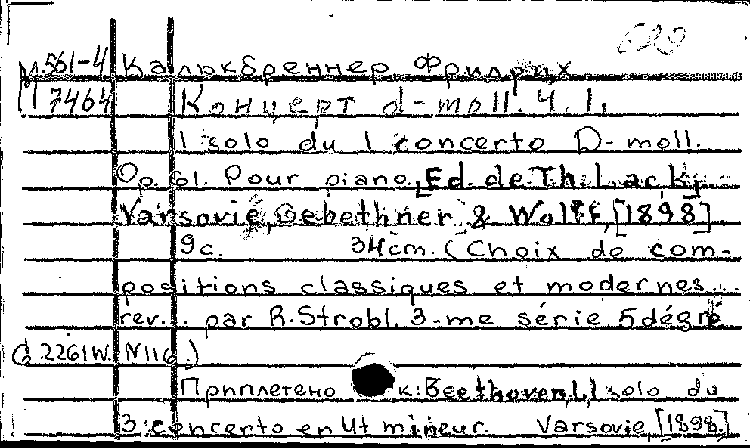 М 561-4 Калькбреннер Фридрих
7464 Концерт d-moll. Ч. I.
1 solo du 1 concerto D-moll.
Op. 61. Pour piano, Ed. de Th.
Varsovie, Gebethner & Wolff, [1898]
9с. 34cm. (Choix de com-
positions classiques et modernes...
rev... par R. Strobl. 3-me série 5 dégré
G 2261 W. N 116.)
Приплетено к: Beethoven, L, 1 solo du
3 concerto en Ut mineur. Varsovie, [1898.]